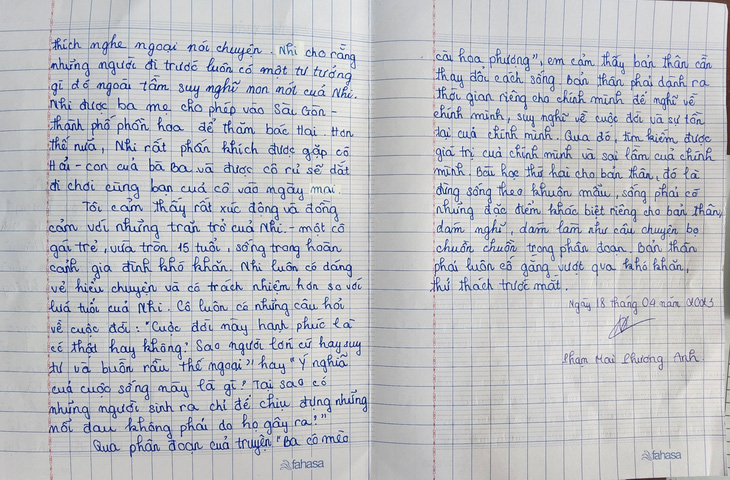 thích nghe ngoại nói chuyện. Nhi cho rằng
những người đi trước luôn có một tư tưởng
gì đó ngoài tầm suy nghĩ non nớt của Nhi.
Nhi được ba mẹ cho phép vào Sài Gòn -
thành phố phồn hoa để thăm bác Hai. Hơn
thế nữa, Nhi rất phấn khích được gặp cô
Hai - con của bà Ba và được cô rủ sẽ dắt
đi chơi cùng bạn của cô vào ngày mai.
Tôi cảm thấy rất xúc động và đồng
cảm với những trăn trở của Nhi - một cô
gái trẻ, vừa tròn 15 tuổi, sống trong hoàn
cảnh gia đình khó khăn. Nhi luôn có dáng
vẻ hiểu chuyện và có trách nhiệm hơn so với
luá tuổi của Nhi. Cô luôn có những câu hỏi
về cuộc đời: "Cuộc đời này hạnh phúc là
có thật hay không? Sao người lớn cứ hay suy
tư và buồn rầu thế ngoại?" hay "Ý nghĩa
của cuộc sống này là gì? Tại sao có
những người sinh ra chỉ để chịu đựng những
nỗi đau không phải do họ gây ra?"
Qua phân đoạn của truyện "Ba cô mèo
fahasa
cài hoa phượng", em cảm thấy bản thân cần
thay đổi cách sống. Bản thân phải dành ra
thời gian riêng cho chính mình để nghĩ về
chính mình, suy nghĩ về cuộc đời và sự tồn
tại của chính mình. Qua đó, tìm kiếm được
giá trị của chính mình và sai lầm của chính
mình. Bài học thứ hai cho bản thân, đó là
đừng sống theo khuôn mẫu, sống phải có
những đặc điểm khác biệt riêng cho bản thân,
dám nghĩ, dám làm như câu chuyện bọ
chuồn chuồn trong phân đoạn. Bản thân
phải luôn cố gắng vượt qua khó khăn,
thử thách trước mắt.
Ngày 18 tháng 04 năm 2023
Phạm Mai Phương Anh
fahasa